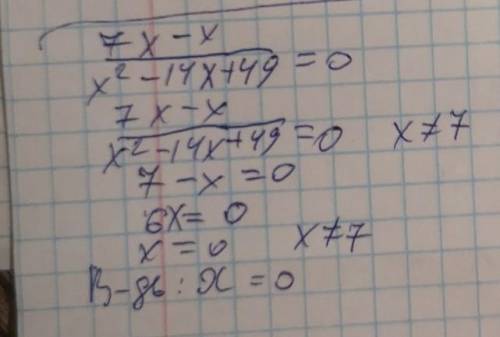 7x - x
x² - 14x + 49 = 0
7x - x
x² - 14x + 49 = 0 x ≠ 7
7 - x = 0
6x = 0
x = 0 x ≠ 7
В-дь: x = 0